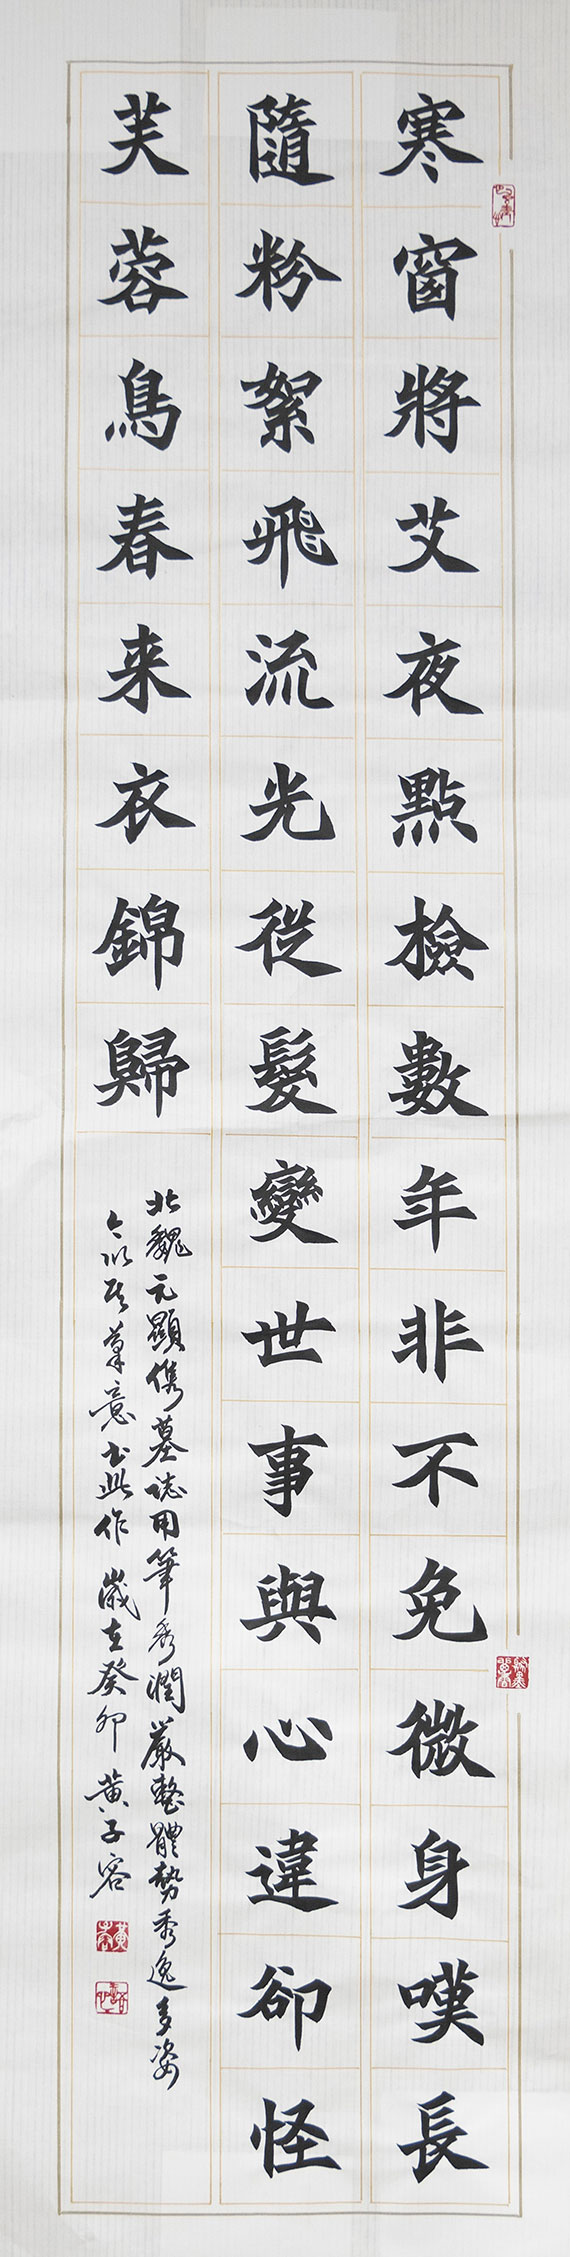 寒窗將艾夜點檢數年非不免微身嘆長
隨粉絮飛流光從髮變世事與心違卻怪
芙蓉鳥春来衣錦歸
北魏元顯儁墓誌用筆秀潤嚴整體勢秀逸多姿
今以其筆意書此作歲在癸卯黄子容